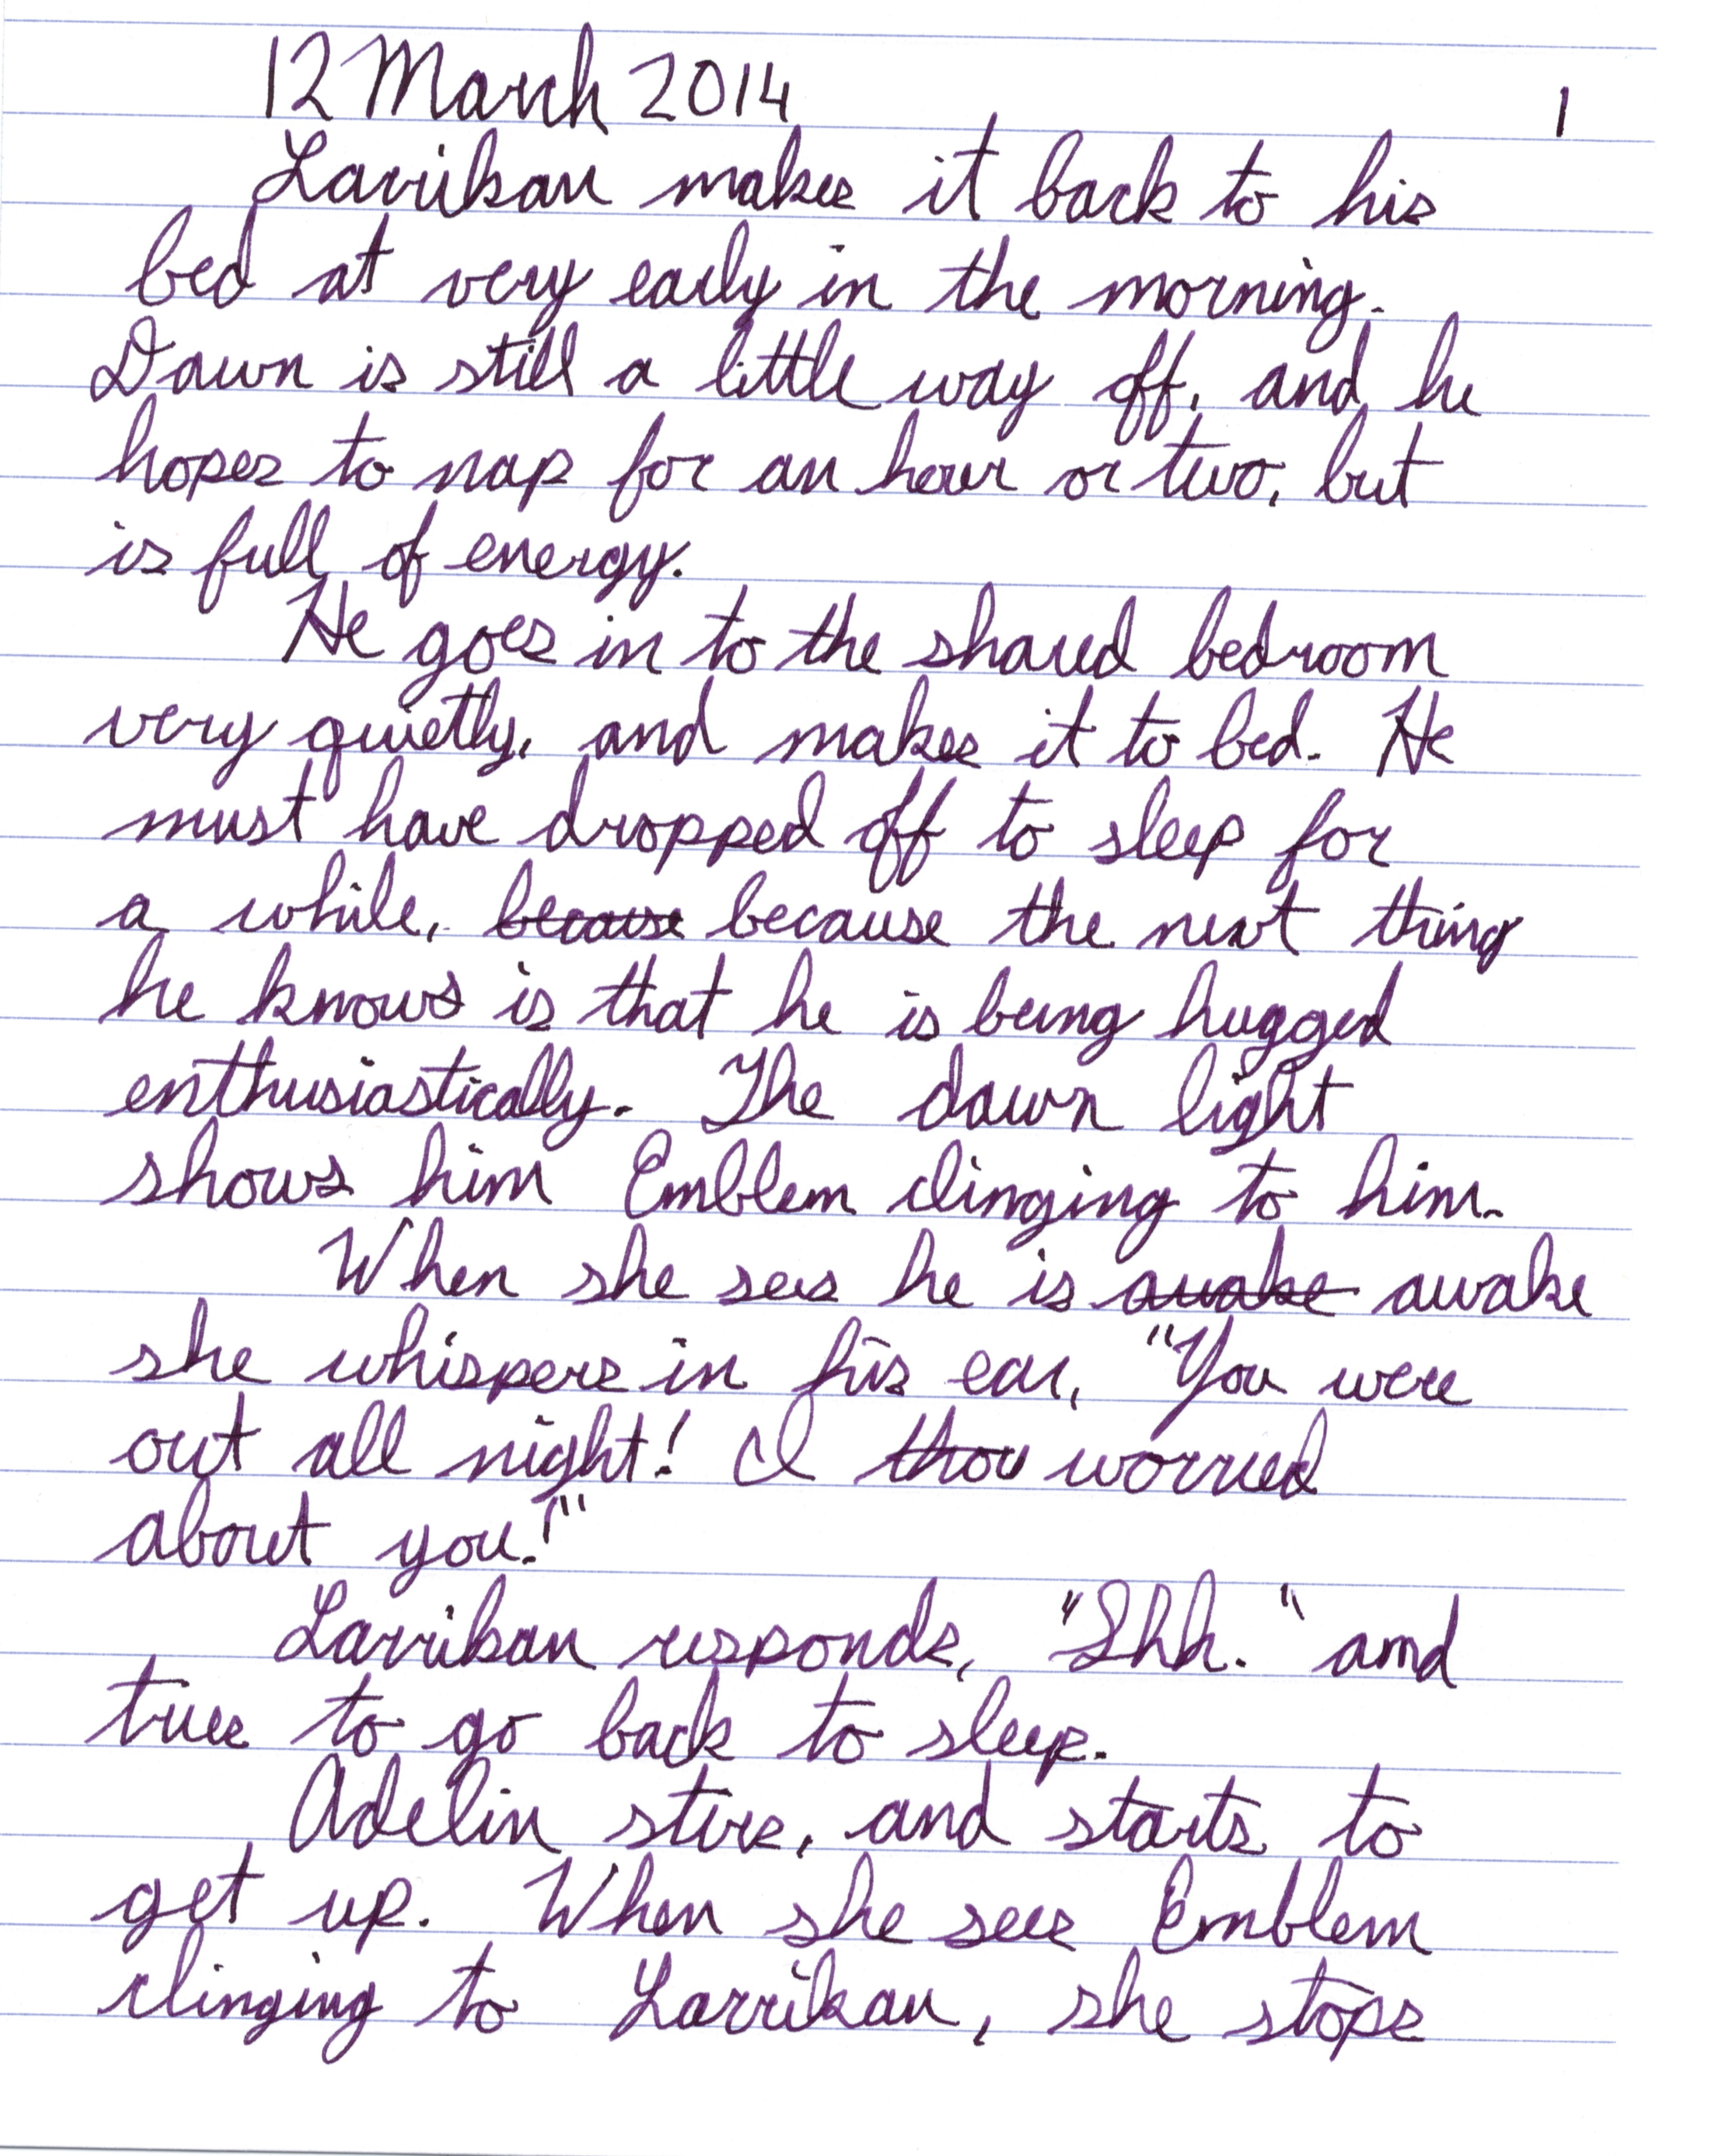 12 March 2014 1
Larrikan makes it back to his
bed at very early in the morning.
Dawn is still a little way off, and he
hopes to nap for an hour or two, but
is full of energy.
He goes in to the shared bedroom
very quietly, and makes it to bed. He
must have dropped off to sleep for
a while, because because the next thing
he knows is that he is being hugged
enthusiastically. The dawn light
shows him Emblem clinging to him.
When she sees he is awake awake
she whispers in his ear, "You were
out all night! I thou worried
about you!"
Larrikan responds, "Shh." and
tries to go back to sleep.
Adelin stirs, and starts to
get up. When she sees Emblem
clinging to Larrikan, she stops